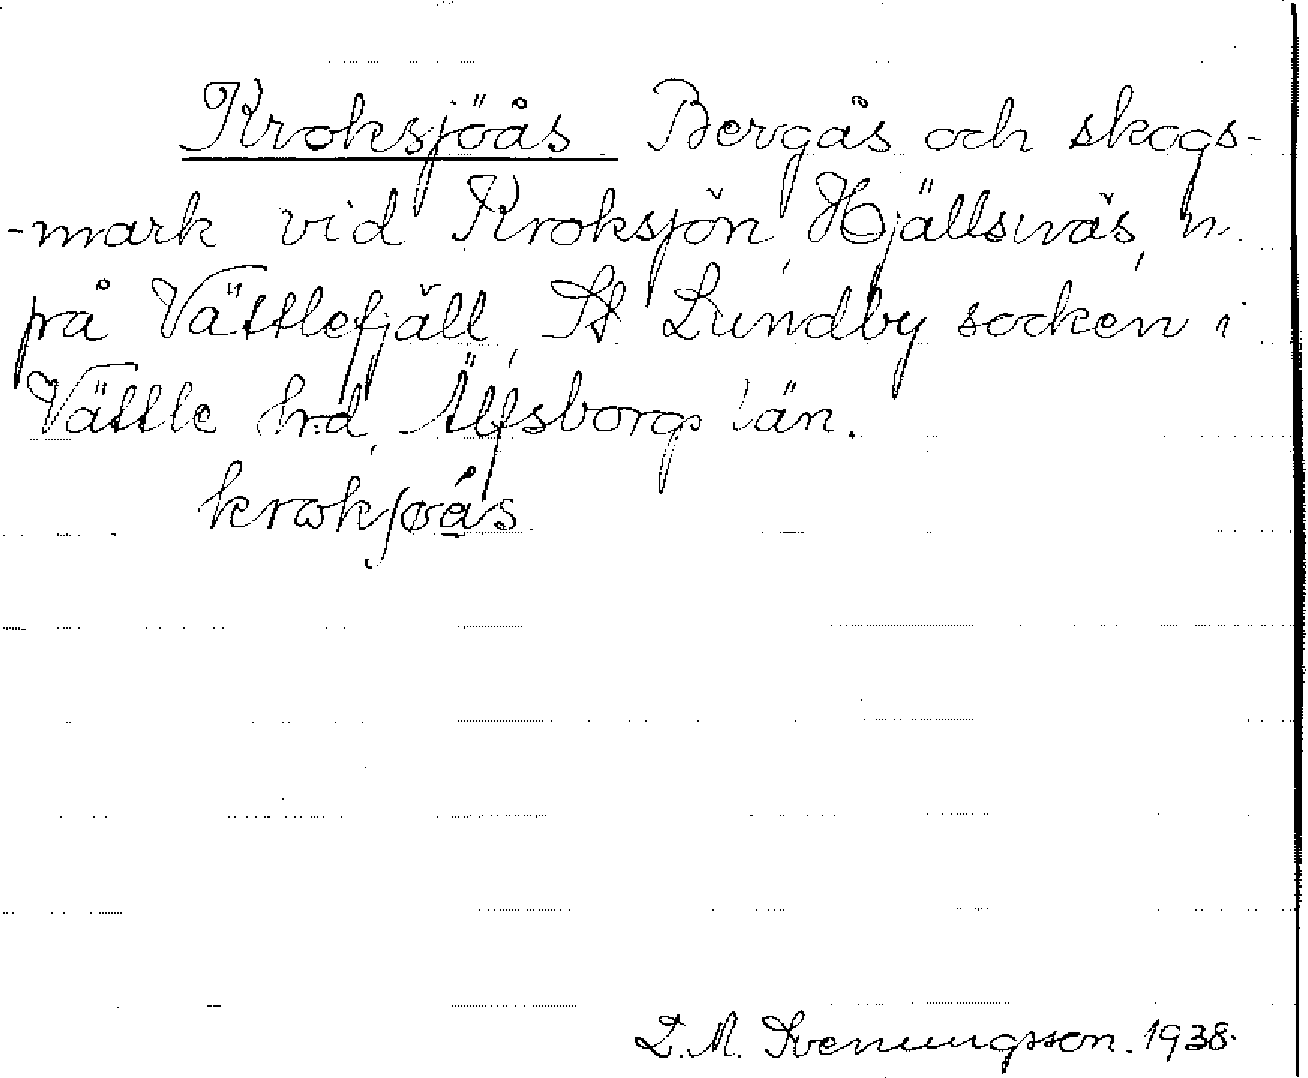 Kroksjöås Bergås och skogs-
-mark vid Kroksjön, Hjällsnäs, n.
på Vättlefjäll, St Lundby socken i
Vättle hrd, Älfsborgs län.
L. M. Svenungsson. 1938.